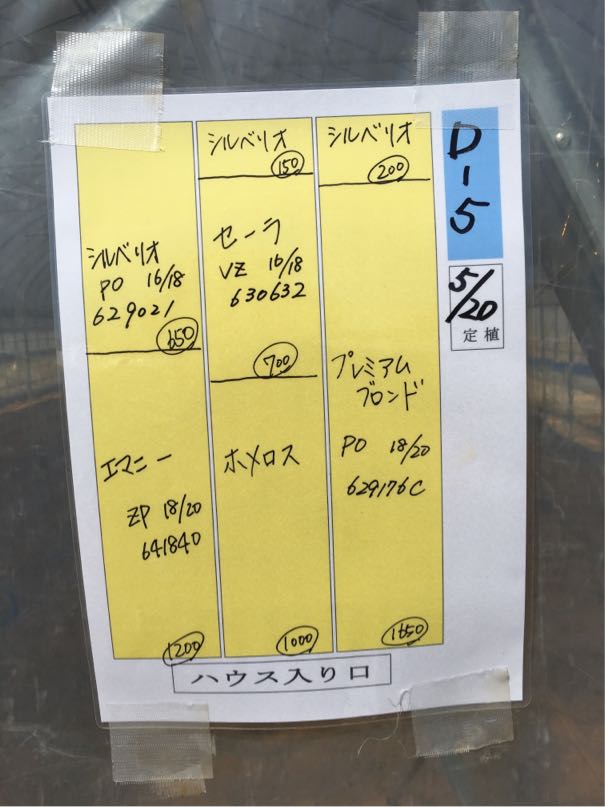 シルベリオ
PO 16/18
629021
650
エマニー
ZP 18/20
641840
1200
シルベリオ
150
セーラ
VZ 16/18
630632
700
ホメロス
1000
シルベリオ
200
プレミアム
ブロンド
PO 18/20
629176C
1650
D-5
5/20
定植
ハウス入り口